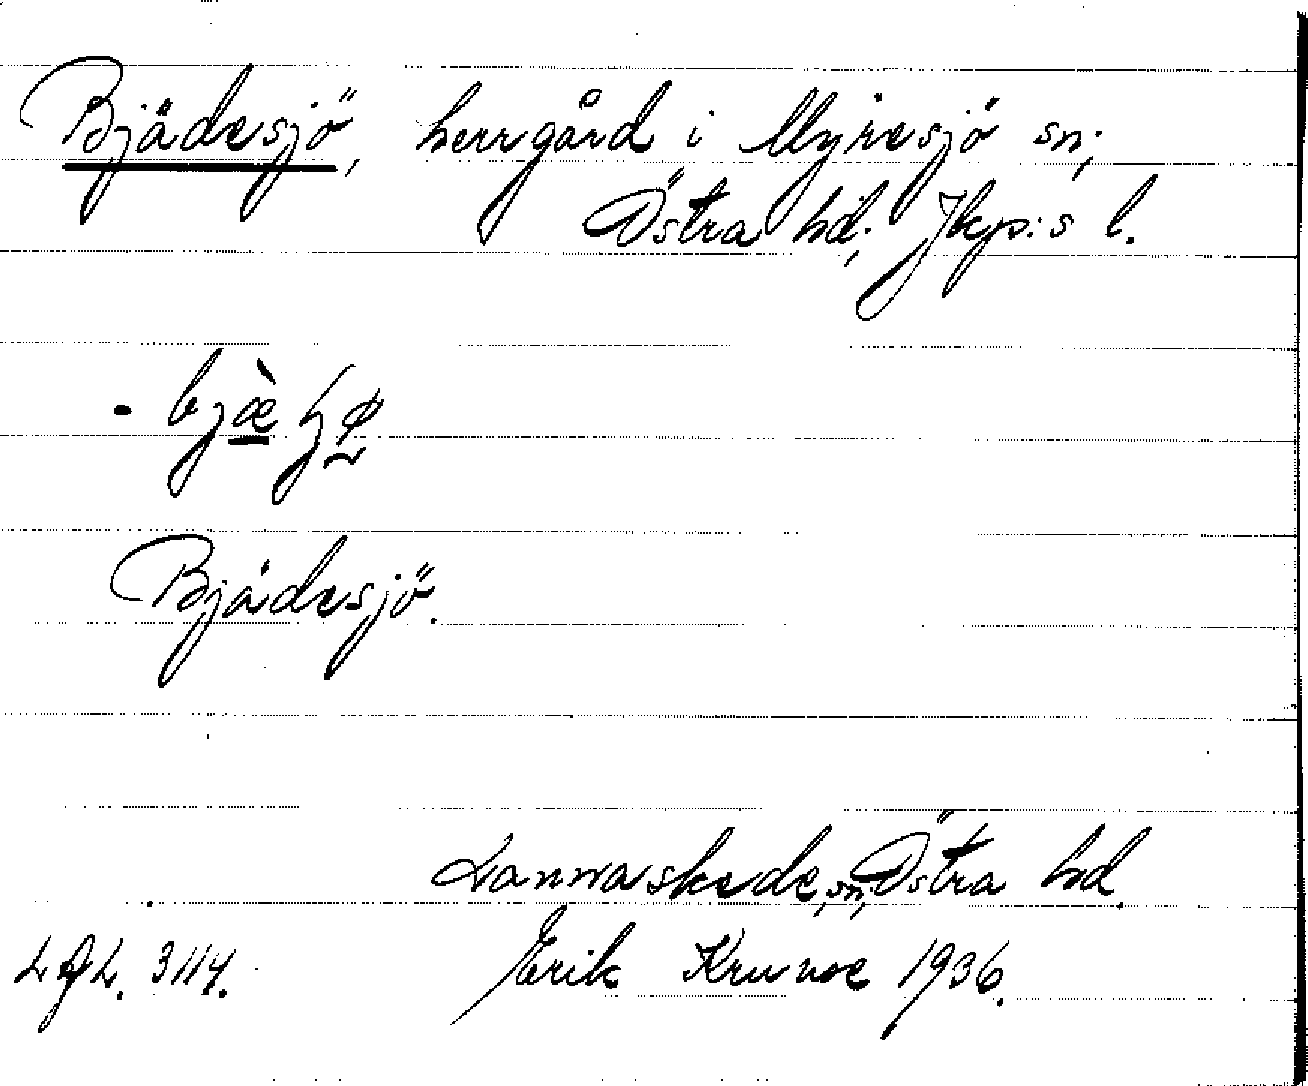 Bjädesjö, herrgård i Myresjö sn;
Östra hd; Jkp:s l.
Bjädesjö.
Lannaskede sn, Östra hd.
Erik Krunoe 1936.
3114.